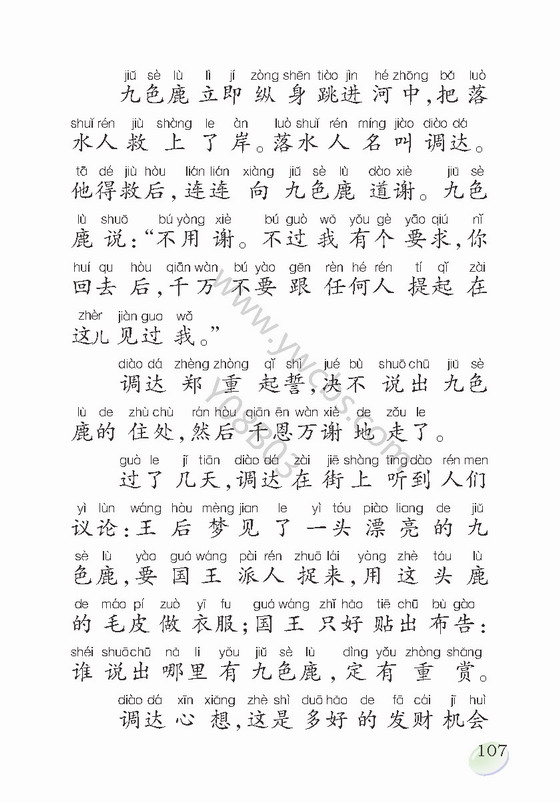 jiǔ sè lù lì jí zòng shēn tiào jìn hé zhōng bǎ luò
九色鹿立即纵身跳进河中，把落
shuǐ rén jiù shàng le àn luò shuǐ rén míng jiào diào dá
水人救上了岸。落水人名叫调达。
tā dé jiù hòu lián lián xiàng jiǔ sè lù dào xiè jiǔ sè
他得救后，连连向九色鹿道谢。九色
lù shuō bú yòng xiè bú guò wǒ yǒu gè yāo qiú nǐ
鹿说：“不用谢。不过我有个要求，你
huí qu hòu qiān wàn bú yào gēn rèn hé rén tí qǐ zài
回去后，千万不要跟任何人提起在
zhèr jiàn guo wǒ
这儿见过我。”
diào dá zhèng zhòng qǐ shì jué bù shuō chū jiǔ sè
调达郑重起誓，决不说出九色
lù de zhù chù rán hòu qiān ēn wàn xiè de zǒu le
鹿的住处，然后千恩万谢地走了。
guò le jǐ tiān diào dá zài jiē shàng tīng dào rén men
过了几天，调达在街上听到人们
yì lùn wáng hòu mèng jian le yì tóu piào liang de jiǔ
议论：王后梦见了一头漂亮的九
sè lù yào guó wáng pài rén zhuō lái yòng zhè tóu lù
色鹿，要国王派人捉来，用这头鹿
de máo pí zuò yī fu guó wáng zhǐ hǎo tiē chū bù gào
的毛皮做衣服；国王只好贴出布告：
shéi shuō chū nǎ li yǒu jiǔ sè lù dìng yǒu zhòng shǎng
谁说出哪里有九色鹿，定有重赏。
diào dá xīn xiǎng zhè shì duō hǎo de fā cái jī huì
调达心想，这是多好的发财机会
107
www.ywcbs.com
Y08B03